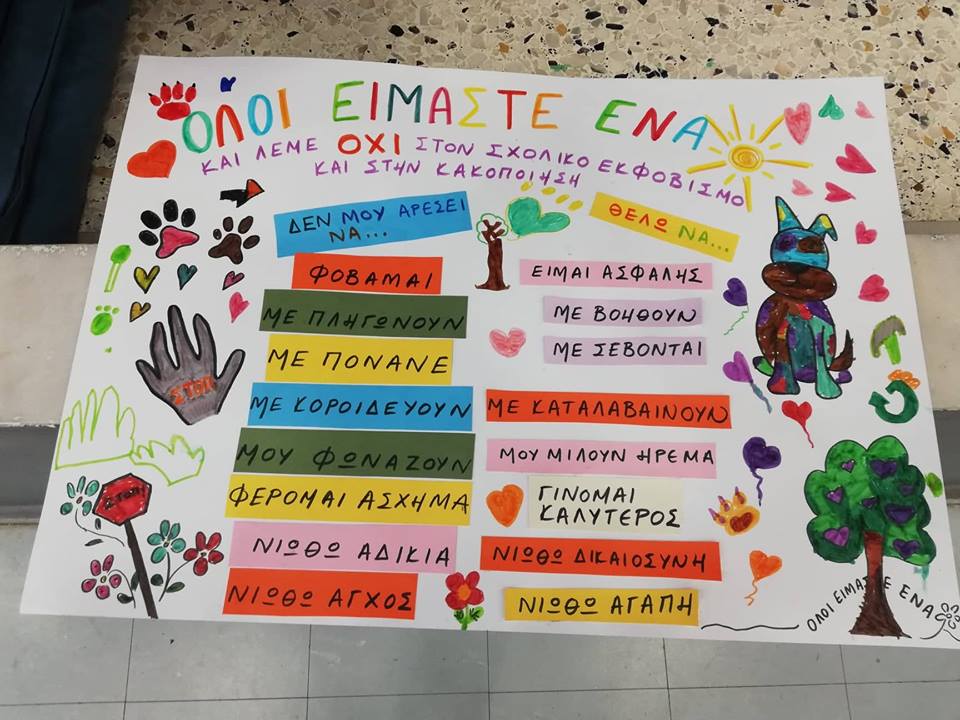 ΟΛΟΙ ΕΙΜΑΣΤΕ ΕΝΑ
ΚΑΙ ΛΕΜΕ ΟΧΙ ΣΤΟΝ ΣΧΟΛΙΚΟ ΕΚΦΟΒΙΣΜΟ
ΚΑΙ ΣΤΗΝ ΚΑΚΟΠΟΙΗΣΗ
ΔΕΝ ΜΟΥ ΑΡΕΣΕΙ
ΝΑ...
ΦΟΒΑΜΑΙ
ΜΕ ΠΛΗΓΩΝΟΥΝ
ΜΕ ΠΟΝΑΝΕ
ΜΕ ΚΟΡΟΙΔΕΥΟΥΝ
ΜΟΥ ΦΩΝΑΖΟΥΝ
ΦΕΡΟΜΑΙ ΑΣΧΗΜΑ
ΝΙΩΘΩ ΑΔΙΚΙΑ
ΝΙΩΘΩ ΑΓΧΟΣ
ΘΕΛΩ ΝΑ...
ΕΙΜΑΙ ΑΣΦΑΛΗΣ
ΜΕ ΒΟΗΘΟΥΝ
ΜΕ ΣΕΒΟΝΤΑΙ
ΜΕ ΚΑΤΑΛΑΒΑΙΝΟΥΝ
ΜΟΥ ΜΙΛΟΥΝ ΗΡΕΜΑ
ΓΙΝΟΜΑΙ
ΚΑΛΥΤΕΡΟΣ
ΝΙΩΘΩ ΔΙΚΑΙΟΣΥΝΗ
ΝΙΩΘΩ ΑΓΑΠΗ
ΣΤΟΠ
ΣΤΟΠ!
ΟΛΟΙ ΕΙΜΑΣΤΕ ΕΝΑ